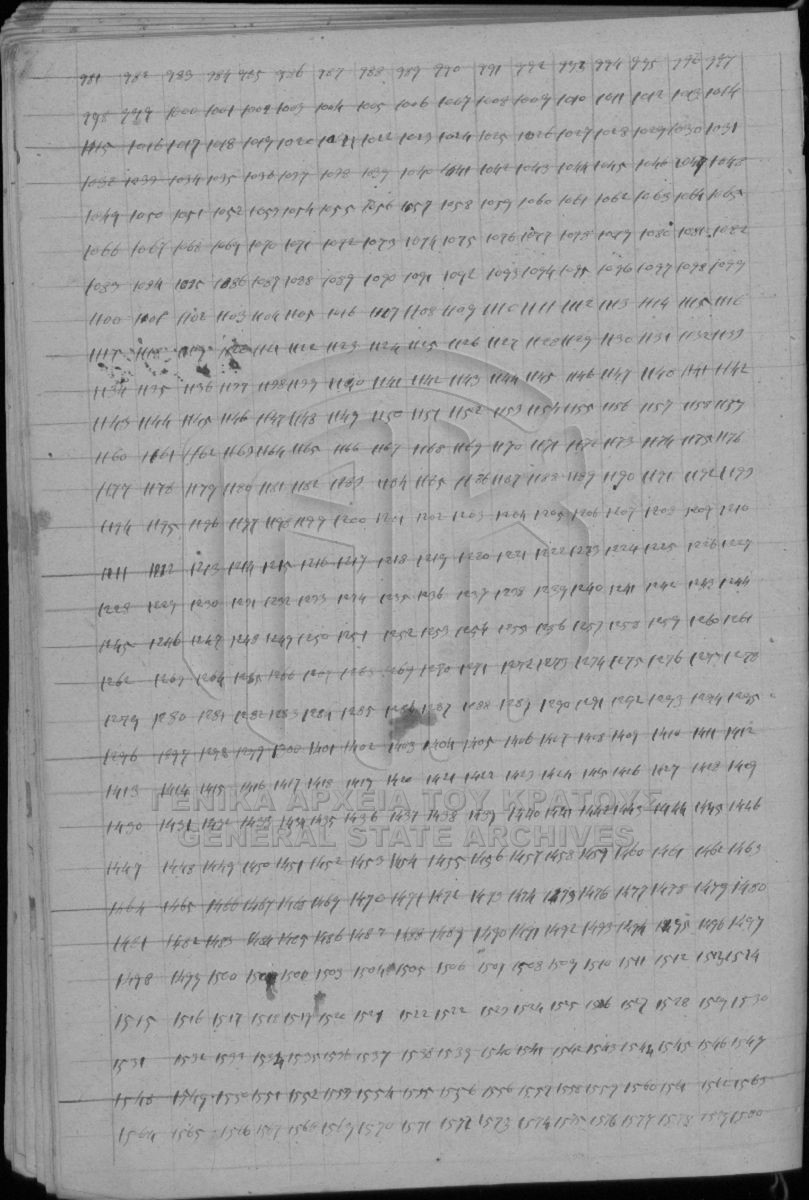 981 982 983 984 985 986 987 988 989 990 991 992 993 994 995 996 997
998 999 1000 1001 1002 1003 1004 1005 1006 1007 1008 1009 1010 1011 1012 1013 1014
1015 1016 1017 1018 1019 1020 1021 1022 1023 1024 1025 1026 1027 1028 1029 1030 1031
1032 1033 1034 1035 1036 1037 1038 1039 1040 1041 1042 1043 1044 1045 1046 1047 1048
1049 1050 1051 1052 1053 1054 1055 1056 1057 1058 1059 1060 1061 1062 1063 1064 1065
1066 1067 1068 1069 1070 1071 1072 1073 1074 1075 1076 1077 1078 1079 1080 1081 1082
1083 1084 1085 1086 1087 1088 1089 1090 1091 1092 1093 1094 1095 1096 1097 1098 1099
1100 1101 1102 1103 1104 1105 1106 1107 1108 1109 1110 1111 1112 1113 1114 1115 1116
1117 1118 1119 1120 1121 1122 1123 1124 1125 1126 1127 1128 1129 1130 1131 1132 1133
1134 1135 1136 1137 1138 1139 1140 1141 1142 1143 1144 1145 1146 1147 1140 1141 1142
1143 1144 1145 1146 1147 1148 1149 1150 1151 1152 1153 1154 1155 1156 1157 1158 1159
1160 1161 1162 1163 1164 1165 1166 1167 1168 1169 1170 1171 1172 1173 1174 1175 1176
1177 1178 1179 1180 1181 1182 1183 1184 1185 1186 1187 1188 1189 1190 1191 1192 1193
1194 1195 1196 1197 1198 1199 1200 1201 1202 1203 1204 1205 1206 1207 1208 1209 1210
1211 1212 1213 1214 1215 1216 1217 1218 1219 1220 1221 1222 1223 1224 1225 1226 1227
1228 1229 1230 1231 1232 1233 1234 1235 1236 1237 1238 1239 1240 1241 1242 1243 1244
1245 1246 1247 1248 1249 1250 1251 1252 1253 1254 1255 1256 1257 1258 1259 1260 1261
1262 1263 1264 1265 1266 1267 1268 1269 1270 1271 1272 1273 1274 1275 1276 1277 1278
1279 1280 1281 1282 1283 1284 1285 1286 1287 1288 1289 1290 1291 1292 1293 1294 1295
1296 1297 1298 1299 1300 1401 1402 1403 1404 1405 1406 1407 1408 1409 1410 1411 1412
1413 1414 1415 1416 1417 1418 1419 1420 1421 1422 1423 1424 1425 1426 1427 1428 1429
ΓΕΝΙΚΑ ΑΡΧΕΙΑ ΤΟΥ ΚΡΑΤΟΥΣ
1430 1431 1432 1433 1434 1435 1436 1437 1438 1439 1440 1441 1442 1443 1444 1445 1446
GENERAL STATE ARCHIVES
1447 1448 1449 1450 1451 1452 1453 1454 1455 1456 1457 1458 1459 1460 1461 1462 1463
1464 1465 1466 1467 1468 1469 1470 1471 1472 1473 1474 1475 1476 1477 1478 1479 1480
1481 1482 1483 1484 1485 1486 1487 1488 1489 1490 1491 1492 1493 1494 1495 1496 1497
1498 1499 1500 1501 1502 1503 1504 1505 1506 1507 1508 1509 1510 1511 1512 1513 1514
1515 1516 1517 1518 1519 1520 1521 1522 1522 1523 1524 1525 1526 1527 1528 1529 1530
1531 1532 1533 1534 1535 1536 1537 1538 1539 1540 1541 1542 1543 1544 1545 1546 1547
1548 1549 1550 1551 1552 1553 1554 1555 1556 1556 1557 1558 1559 1560 1561 1562 1563
1564 1565 1566 1567 1568 1569 1570 1571 1572 1573 1574 1575 1576 1577 1578 1579 1580